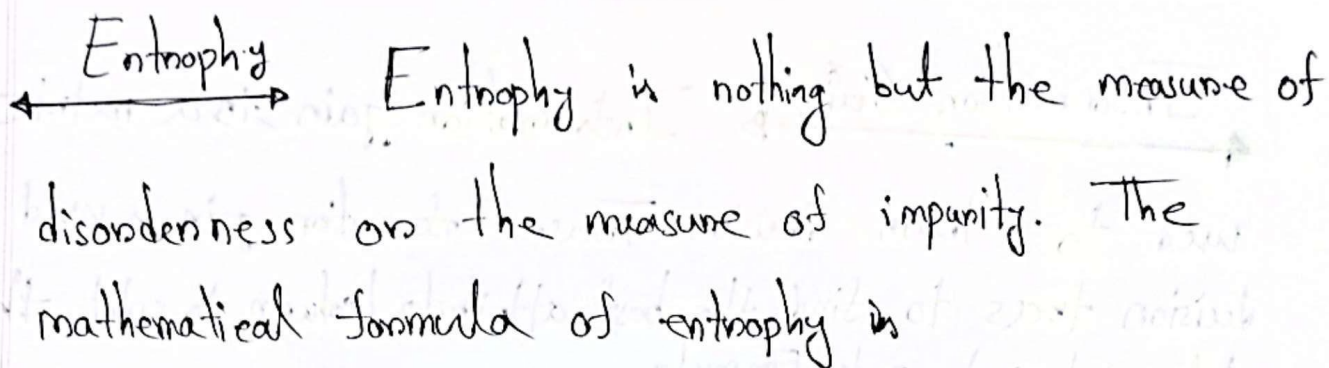 Entrophy Entrophy is nothing but the measure of
disorderness or the measure of impurity. The
mathematical formula of entrophy is